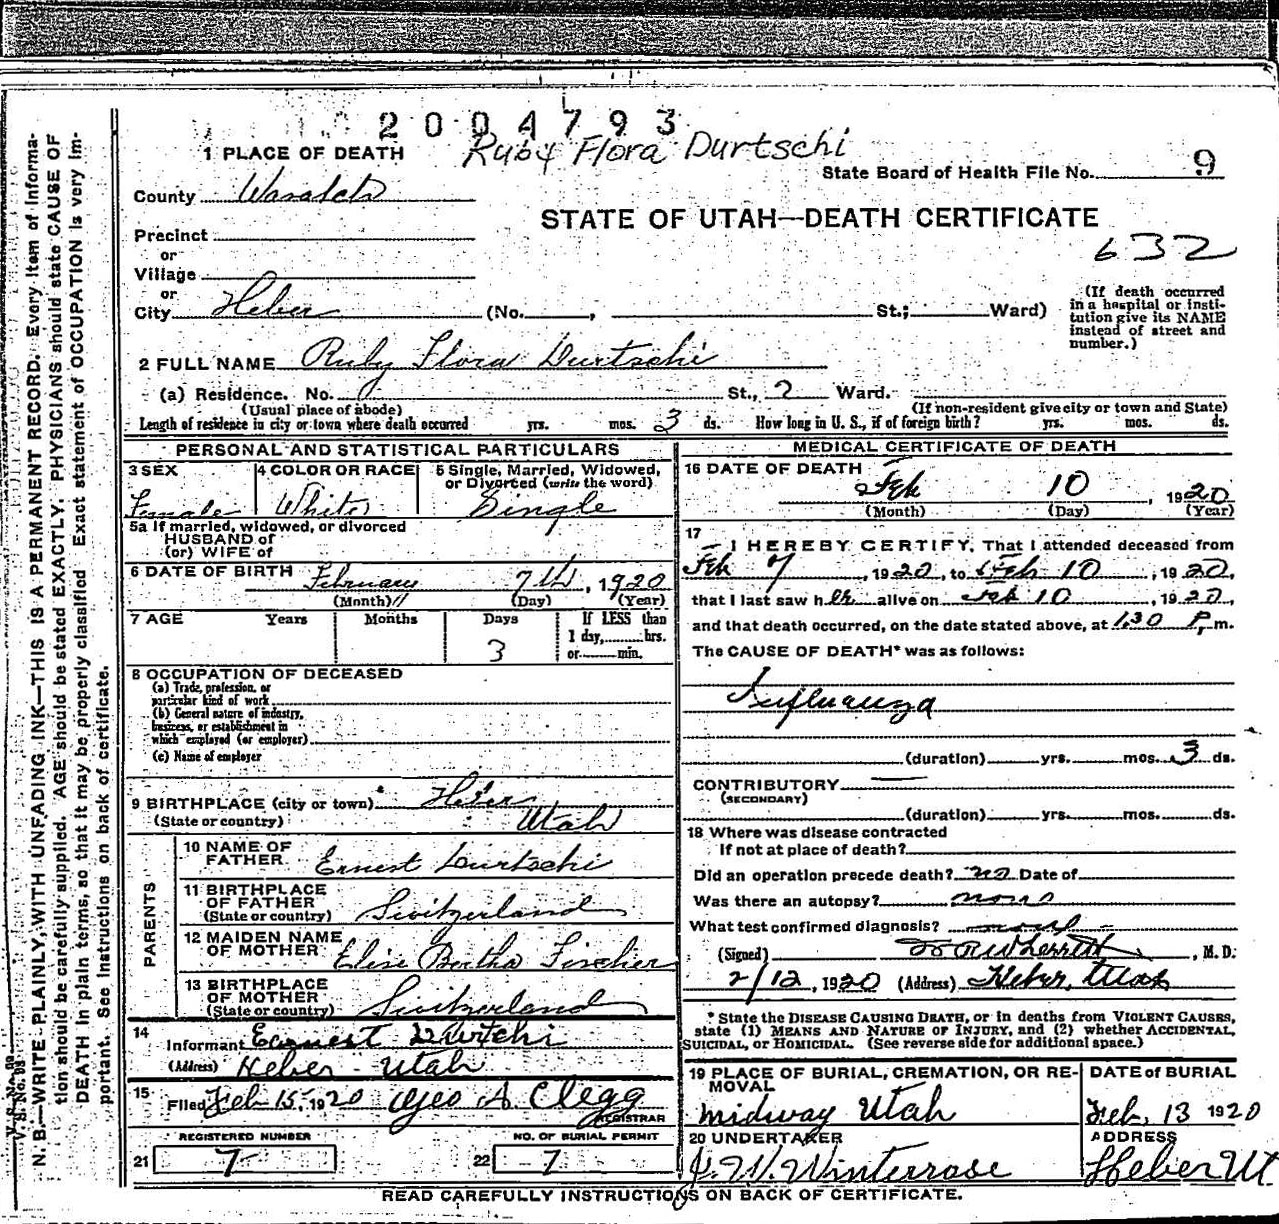 2004793
Ruby Flora Durtschi
1 PLACE OF DEATH
State Board of Health File No. 9
County Wasatch
STATE OF UTAH—DEATH CERTIFICATE
632
Precinct
or
Village
or
City Heber (No. , St.; Ward)
(If death occurred
in a hospital or insti-
tution give its NAME
instead of street and
number.)
2 FULL NAME Ruby Flora Durtschi
(a) Residence. No. St., 2 Ward.
(Usual place of abode) (If non-resident give city or town and State)
Length of residence in city or town where death occurred yrs. mos. 3 ds. How long in U. S., if of foreign birth? yrs. mos. ds.
PERSONAL AND STATISTICAL PARTICULARS
3 SEX 4 COLOR OR RACE 5 Single, Married, Widowed,
or Divorced (write the word)
Female White Single
5a If married, widowed, or divorced
HUSBAND of
(or) WIFE of
6 DATE OF BIRTH February 7th, 1920
(Month) (Day) (Year)
7 AGE Years Months Days If LESS than
1 day, hrs.
or min.
3
8 OCCUPATION OF DECEASED
(a) Trade, profession, or
particular kind of work
(b) General nature of industry,
business, or establishment in
which employed (or employer)
(c) Name of employer
9 BIRTHPLACE (city or town) Heber
(State or country) Utah
PARENTS
10 NAME OF
FATHER Ernest Durtschi
11 BIRTHPLACE
OF FATHER
(State or country) Switzerland
12 MAIDEN NAME
OF MOTHER Elise Bertha Fischer
13 BIRTHPLACE
OF MOTHER
(State or country) Switzerland
14
Informant Earnest Durtchi
(Address) Heber - Utah
15
Filed Feb 15, 1920 Geo A Clegg
REGISTRAR
REGISTERED NUMBER NO. OF BURIAL PERMIT
21 7 22 7
MEDICAL CERTIFICATE OF DEATH
16 DATE OF DEATH
Feb 10, 1920
(Month) (Day) (Year)
17
I HEREBY CERTIFY, That I attended deceased from
Feb 7, 1920, to Feb 10, 1920,
that I last saw her alive on Feb 10, 1920,
and that death occurred, on the date stated above, at 1:30 P. m.
The CAUSE OF DEATH* was as follows:
Influanza
(duration) yrs. mos. 3 ds.
CONTRIBUTORY
(SECONDARY)
(duration) yrs. mos. ds.
18 Where was disease contracted
If not at place of death?
Did an operation precede death? no Date of
Was there an autopsy? none
What test confirmed diagnosis?
(Signed) Wherritt, M. D.
2/12, 1920 (Address) Heber, Utah
* State the DISEASE CAUSING DEATH, or in deaths from VIOLENT CAUSES,
state (1) MEANS AND NATURE OF INJURY, and (2) whether ACCIDENTAL,
SUICIDAL, or HOMICIDAL. (See reverse side for additional space.)
19 PLACE OF BURIAL, CREMATION, OR RE-
MOVAL
Midway Utah
DATE of BURIAL
Feb, 13 1920
20 UNDERTAKER
J. W. Winterrose
ADDRESS
Heber Ut
READ CAREFULLY INSTRUCTIONS ON BACK OF CERTIFICATE.
N. B.—WRITE PLAINLY, WITH UNFADING INK—THIS IS A PERMANENT RECORD. Every item of informa-
tion should be carefully supplied. AGE should be stated EXACTLY. PHYSICIANS should state CAUSE OF
DEATH in plain terms, so that it may be properly classified. Exact statement of OCCUPATION is very im-
portant. See instructions on back of certificate.